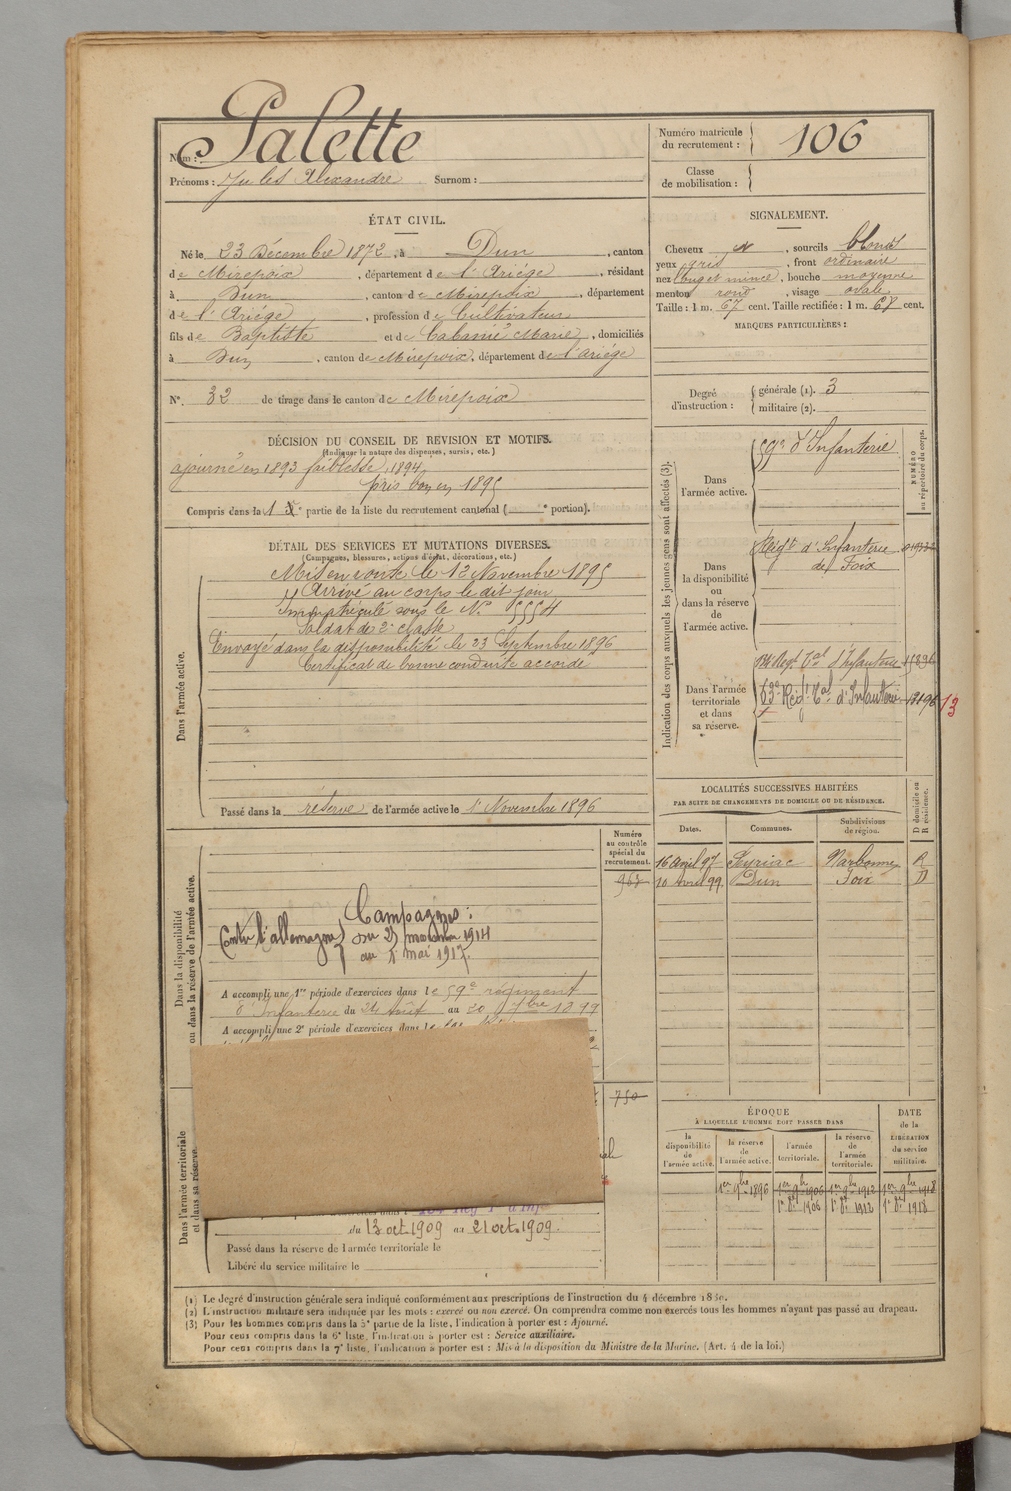 Nom : Palette
Prénoms : Jules Alexandre Surnom :
Numéro matricule
du recrutement : 106
Classe
de mobilisation :
ÉTAT CIVIL.
Né le 23 Décembre 1872, à Dun, canton
de Mirepoix, département de l'Ariége, résidant
à Dun, canton de Mirepoix, département
de l'Ariége, profession de Cultivateur
fils de Baptiste et de Cabanié Marie, domiciliés
à Dun, canton de Mirepoix, département de l'Ariége
N° 32 de tirage dans le canton de Mirepoix
SIGNALEMENT.
Cheveux , sourcils blonds
yeux gris, front ordinaire
nez long et mince, bouche moyenne
menton rond, visage ovale
Taille : 1 m. 67 cent. Taille rectifiée : 1 m. 67 cent.
MARQUES PARTICULIÈRES :
Degré
d'instruction :
générale (1). 3
militaire (2).
DÉCISION DU CONSEIL DE REVISION ET MOTIFS.
(Indiquer la nature des dispenses, sursis, etc.)
ajourné en 1893 faiblesse, 1894
pris bon en 1895
Compris dans la 1e partie de la liste du recrutement cantonal ( e portion).
DÉTAIL DES SERVICES ET MUTATIONS DIVERSES.
(Campagnes, blessures, actions d'éclat, décorations, etc.)
Dans l'armée active.
Mis en route le 12 Novembre 1895
Arrivé au corps le dit jour
Immatriculé sous le N° 5554
Soldat de 2e classe
Envoyé dans la disponibilité le 23 Septembre 1896
Certificat de bonne conduite accordé
Passé dans la réserve de l'armée active le 1r Novembre 1896
Indication des corps auxquels les jeunes gens sont affectés (3).
NUMÉRO
au répertoire du corps.
Dans
l'armée active.
59e d'Infanterie
Dans
la disponibilité
ou
dans la réserve
de
l'armée active.
Régt d'Infanterie
de Foix
Dans l'armée
territoriale
et dans
sa réserve.
Régt Tal d'Infanterie
Régt Tal d'Infanterie
13
LOCALITÉS SUCCESSIVES HABITÉES
PAR SUITE DE CHANGEMENTS DE DOMICILE OU DE RÉSIDENCE.
Dates. Communes. Subdivisions
de région. D domicile ou
R résidence.
16 Avril 97 Peyriac Narbonne R
20 Avril 99 Dun Foix D
Numéro
au contrôle
spécial du
recrutement.
963
Dans la disponibilité
ou dans la réserve de l'armée active.
Campagnes :
Contre l'allemagne du 25 novembre 1914
au 1r mai 1917.
A accompli une 1re période d'exercices dans le 59e régiment
d'Infanterie du 24 Août au 20 7bre 1899
A accompli une 2e période d'exercices dans le
750
Dans l'armée territoriale
et dans sa réserve.
du 13 oct. 1909 au 21 oct. 1909.
Passé dans la réserve de l'armée territoriale le
Libéré du service militaire le
ÉPOQUE
À LAQUELLE L'HOMME DOIT PASSER DANS
DATE
de la
LIBÉRATION
du service
militaire.
la
disponibilité
de
l'armée active.
la réserve
de
l'armée active.
l'armée
territoriale.
la réserve
de
l'armée
territoriale.
1er 9bre 1896 1er 9bre 1906 1er 9bre 1912 1er 9bre 1918
1r 8bre 1906 1r 8bre 1912 1r 8bre 1918
(1) Le degré d'instruction générale sera indiqué conformément aux prescriptions de l'instruction du 4 décembre 1830.
(2) L'instruction militaire sera indiquée par les mots : exercé ou non exercé. On comprendra comme non exercés tous les hommes n'ayant pas passé au drapeau.
(3) Pour les hommes compris dans la 5e partie de la liste, l'indication à porter est : Ajourné.
Pour ceux compris dans la 6e liste, l'indication à porter est : Service auxiliaire.
Pour ceux compris dans la 7e liste, l'indication à porter est : Mis à la disposition du Ministre de la Marine. (Art. 4 de la loi.)